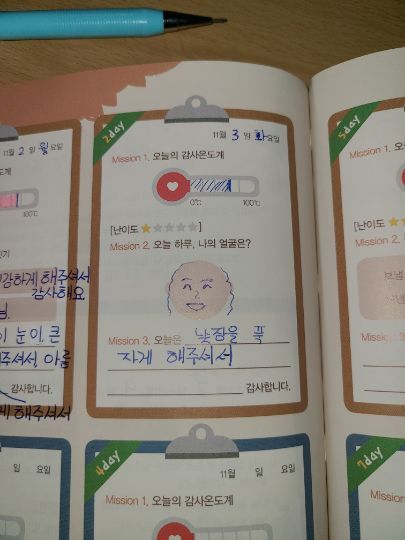 11월 2 일 월요일
도계
100℃
강하게 해주셔서
감사해요
이 눈이 큰
주셔서, 아름
감사합니다.
게 해주셔서
2day
11월 3 일 화요일
Mission 1. 오늘의 감사온도계
0℃ 100℃
[난이도 ★☆☆☆☆]
Mission 2. 오늘 하루, 나의 얼굴은?
Mission 3. 오늘은 낮잠을 푹
자게 해주셔서
감사합니다.
요일
4day
11월 일 요일
Mission 1. 오늘의 감사온도계
5day
Mission 1. 오
[난이도 ★
Mission 2.
보낼
Mission 3.
7day
Mission